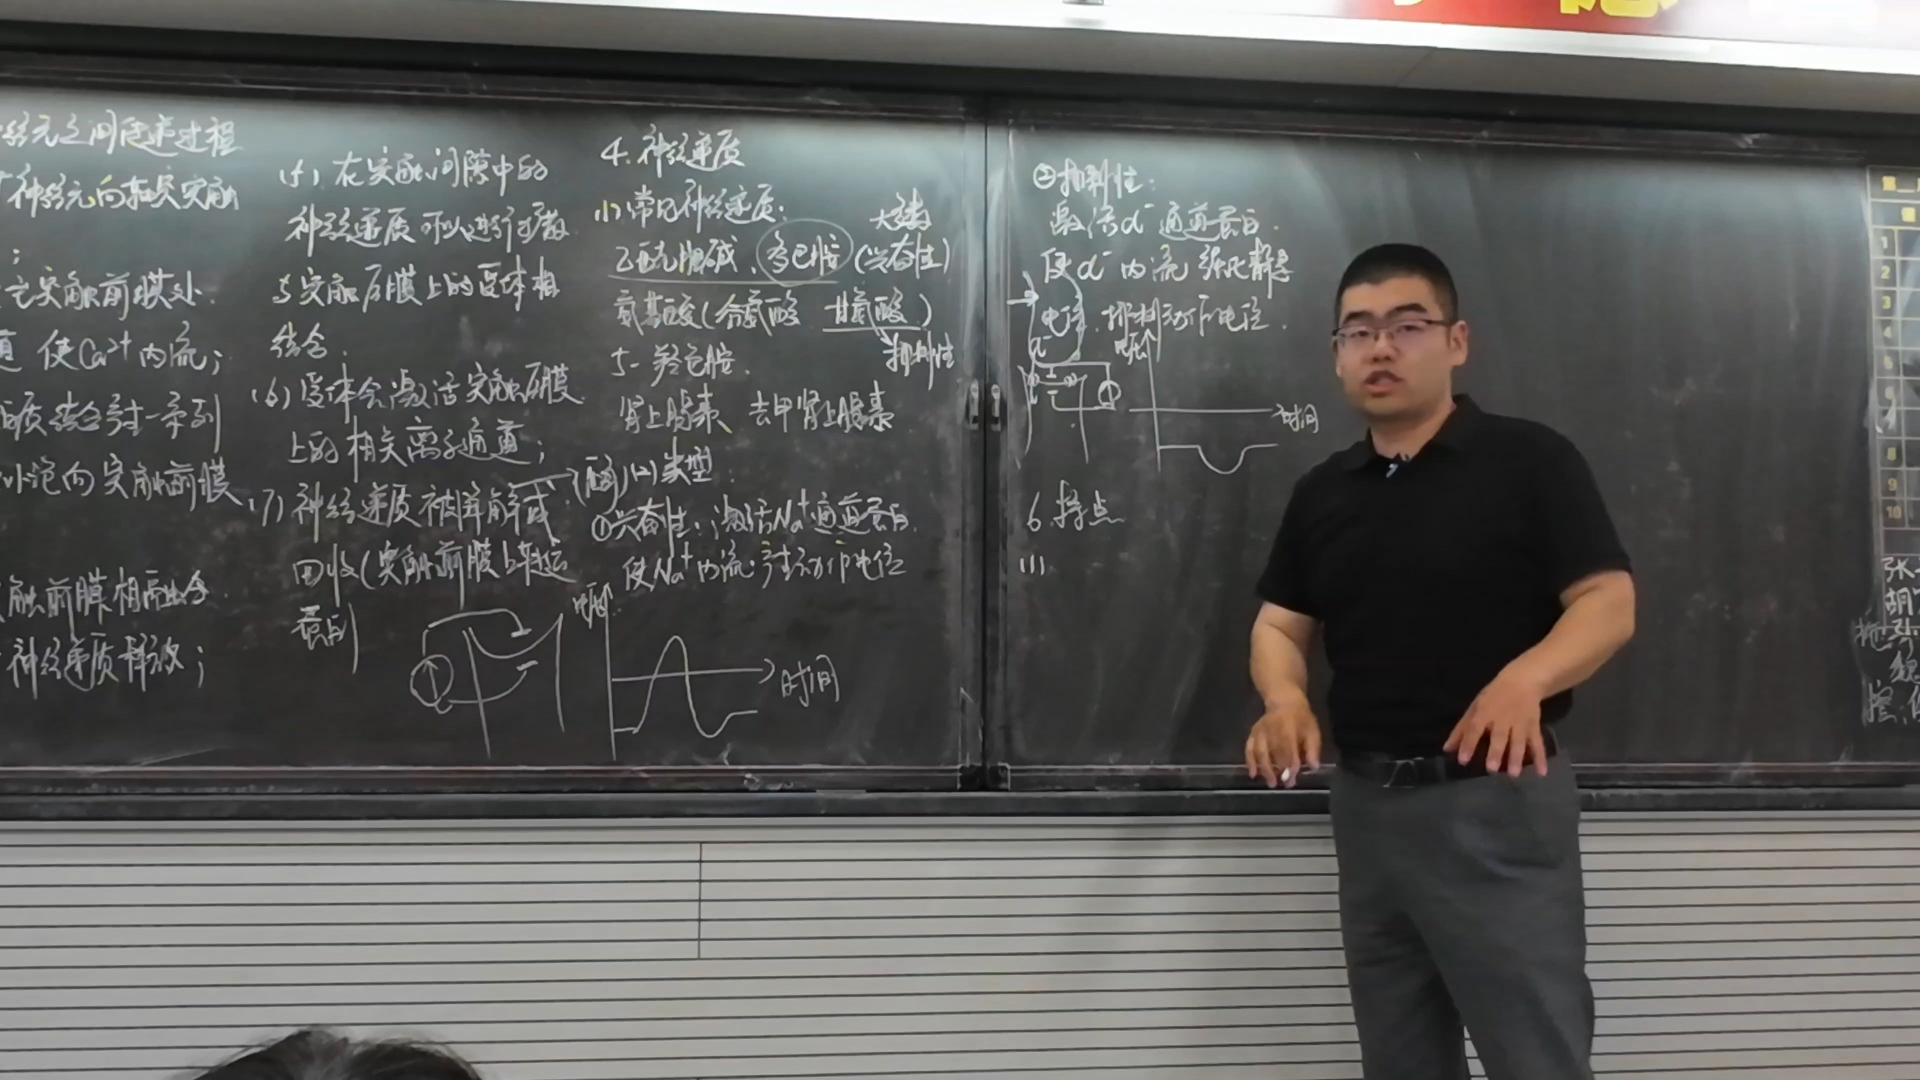 神经元之间传递过程
神经元向轴突突触
;
突触前膜处
使Ca²⁺内流;
质结合产生一系列
小泡向突触前膜
触前膜相融合
神经递质释放;
(5) 在突触间隙中的
神经递质可以进行扩散
与突触后膜上的受体相
结合.
(6) 受体会激活突触后膜
上的相关离子通道;
(7) 神经递质被降解或 → (酶)
回收(突触前膜上转运
蛋白)
4. 神经递质
(1) 常见神经递质: 大多数
乙酰胆碱、多巴胺 (兴奋性)
氨基酸(谷氨酸 甘氨酸)
抑制性
5-羟色胺.
肾上腺素 去甲肾上腺素
(2) 类型.
①兴奋性: 激活Na⁺通道蛋白.
使Na⁺内流.产生动作电位
电位
时间
②抑制性:
激活Cl⁻通道蛋白.
使Cl⁻内流 强化静息
电位.抑制动作电位.
Cl⁻
电位
时间
6. 特点
(1)
1
2
3
4
5
8
9
10
张
胡